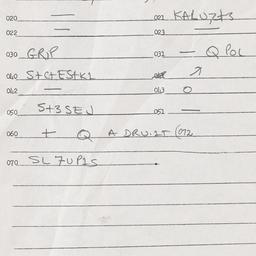 020 — 021 KALU7+3
022 — 023 —
030 GRJP 031 — Q POL
040 S+C+ES+K1 ↗
042 — 043 O
050 S+3SEJ 051 —
060 + Q A DRU.2T (072
070 SL7UP1S .